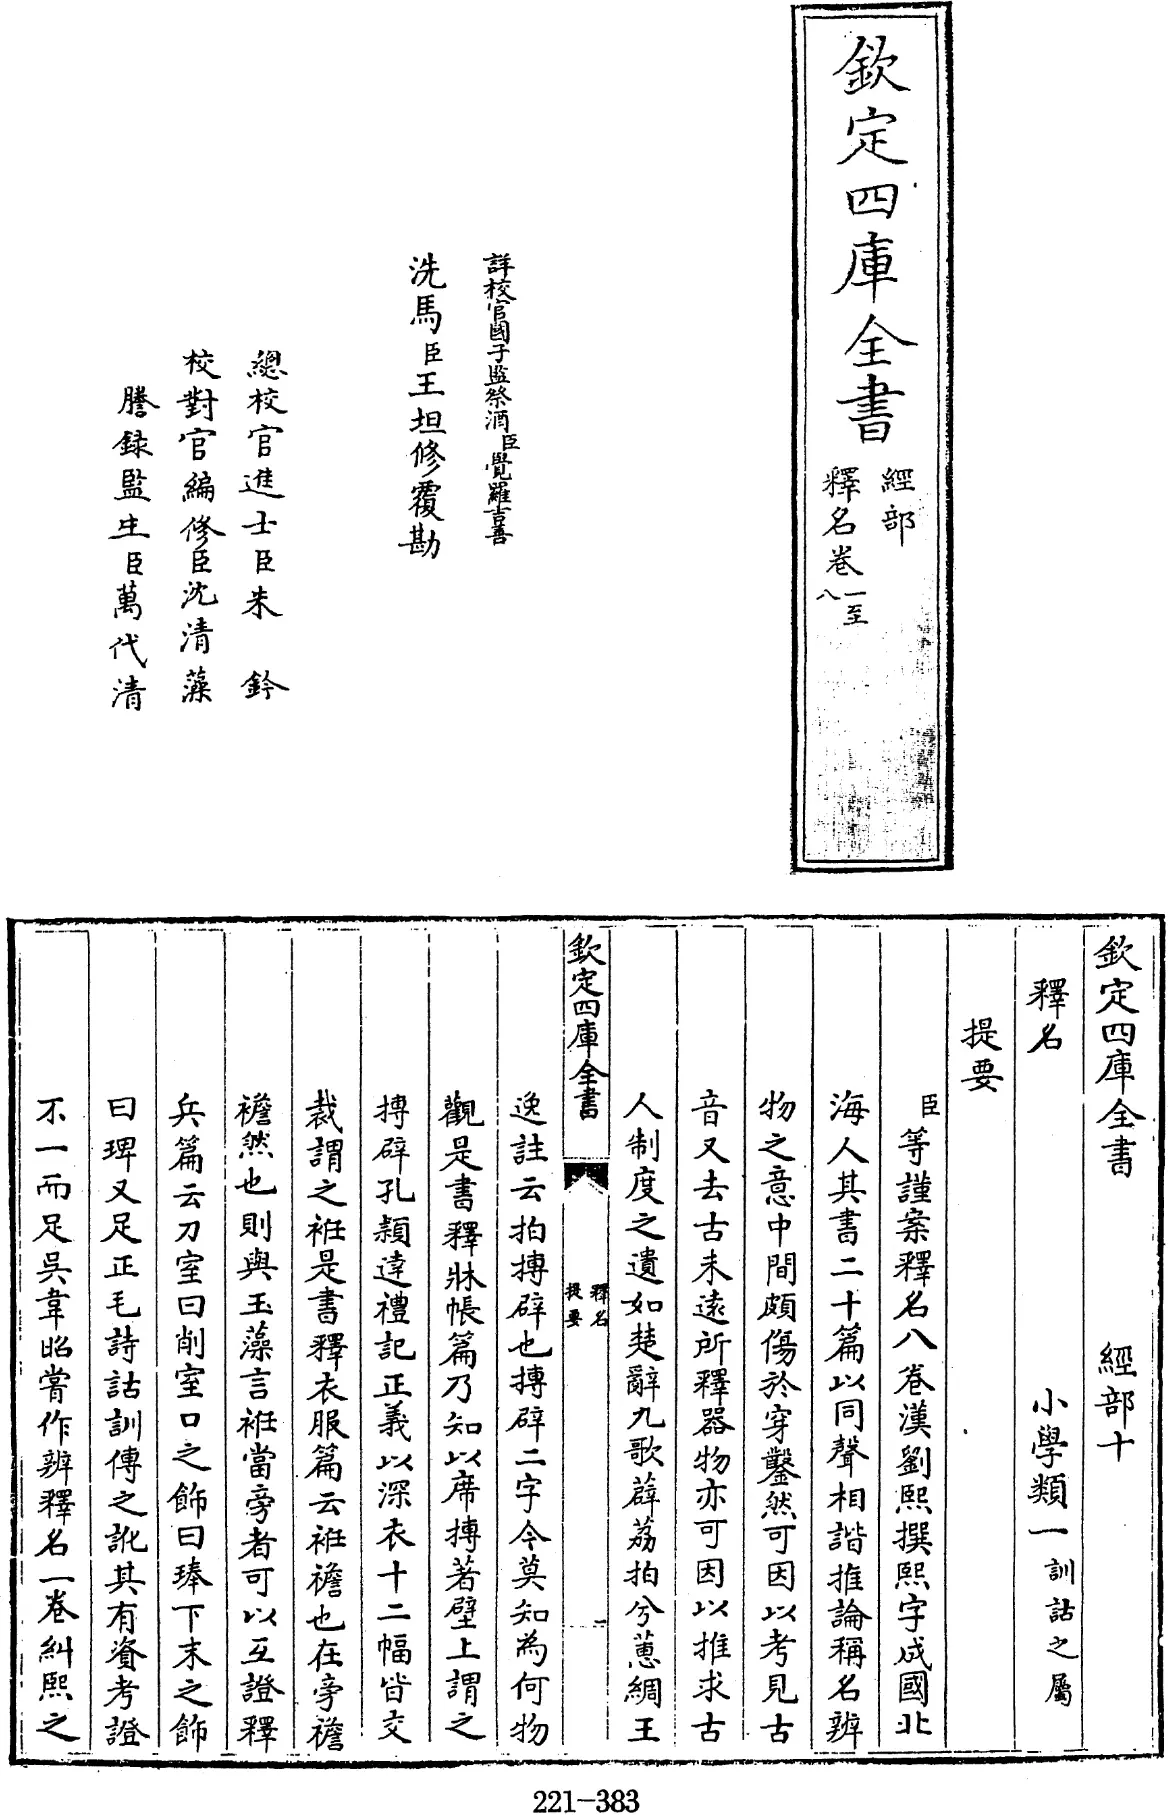 欽定四庫全書
經部
釋名卷一至八
詳校官國子監祭酒臣覺羅吉善
洗馬臣王坦修覆勘
總校官進士臣朱鈐
校對官編修臣沈清藻
謄録監生臣萬代清
欽定四庫全書 經部十
釋名 小學類一訓詁之屬
提要
臣等謹案釋名八卷漢劉熙撰熙字成國北
海人其書二十篇以同聲相諧推論稱名辨
物之意中間頗傷於穿鑿然可因以考見古
音又去古未遠所釋器物亦可因以推求古
人制度之遺如楚辭九歌薜荔拍兮蕙綢王
欽定四庫全書
釋名
提要
一
逸註云拍搏辟也搏辟二字今莫知為何物
觀是書釋牀帳篇乃知以席搏著壁上謂之
搏辟孔穎達禮記正義以深衣十二幅皆交
裁謂之衽是書釋衣服篇云衽襜也在旁襜
襜然也則與玉藻言衽當旁者可以互證釋
兵篇云刀室曰削室口之飾曰琫下末之飾
曰琕又足正毛詩詁訓傳之訛其有資考證
不一而足吳韋昭嘗作辨釋名一卷糾熙之
221-383